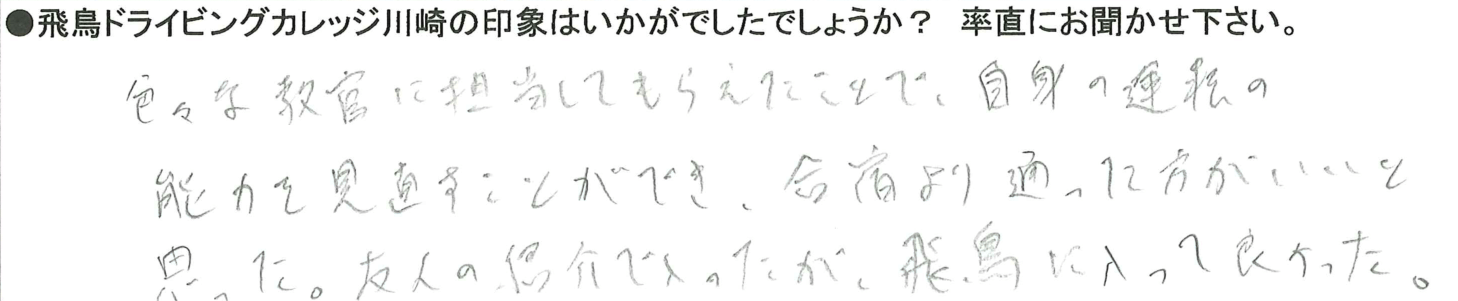 ●飛鳥ドライビングカレッジ川崎の印象はいかがでしたでしょうか？ 率直にお聞かせ下さい。
色々な教官に担当してもらえたことで、自身の運転の
能力を見直すことができ、合宿より通った方がいいと
思った。友人の紹介で入ったが、飛鳥に入って良かった。